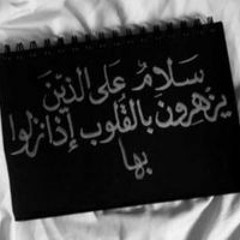 سَلامٌ عَلى الذينَ
يزهرونَ بالقُلوب إذا نزلوا
بها